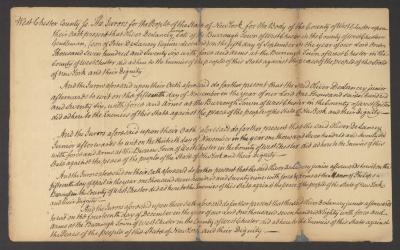 West Chester County ss. The Jurors for the People of the State of New York for the Body of the County of West Chester upon
their Oath present that Oliver Delancey, late of the Burrough Town of West Chester in the County of West Chester
Gentleman, Son of Peter Delancey Esquire deceased on the fifth day of September in the year of our Lord one
Thousand seven hundred and seventy six with force and Arms at the Burrough Town of West Chester in the
County of West Chester did adhere to the Enemies of the people of this State against the peace of the people of the State
of New York and their Dignity
And the Jurors aforesaid upon their Oath aforesaid do farther present that the said Oliver Delancey junior
afterwards to wit on the fifteenth day of November in the year of our Lord one thousand seven hundred
and seventy six, with force and Arms at the Burrough Town of West Chester in the County of West Chester
did adhere to the Enemies of this State against the peace of the people of the State of New York, and their Dignity
And the Jurors aforesaid upon their Oath aforesaid do farther present that the said Oliver Delancey
Junior afterwards to wit on the day of in the year one thousand seven hundred and seventy
with force and Arms at the Burrough Town of West Chester in the County of West Chester did adhere to the Enemies of this
State against the peace of the people of the State of New York and their Dignity
And the Jurors aforesaid on their Oath aforesaid do farther present that the said Oliver Delancey junior afterwards to wit on the
fifteenth day of in the year one thousand seven hundred and seventy nine with force and Arms at the Manor of
in the County of West Chester did adhere to the Enemies of this State against the peace of the people of the State of New York
and their Dignity
And the Jurors aforesaid upon their Oath aforesaid do farther present that the said Oliver Delancey junior afterwards
to wit on the fourteenth day of December in the year of our Lord one thousand seven hundred & eighty with force and
arms at the Burrough Town of West Chester in the County of West Chester did adhere to the Enemies of this State against
the Peace of the people of the State of New York, and their Dignity